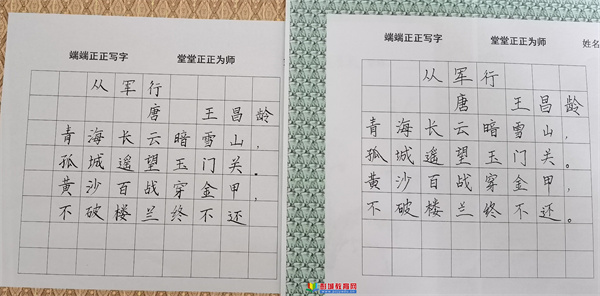 端端正正写字 堂堂正正为师
从军行
唐 王昌龄
青海长云暗雪山，
孤城遥望玉门关。
黄沙百战穿金甲，
不破楼兰终不还
端端正正写字 堂堂正正为师 姓名
从军行
唐 王昌龄
青海长云暗雪山，
孤城遥望玉门关。
黄沙百战穿金甲，
不破楼兰终不还。